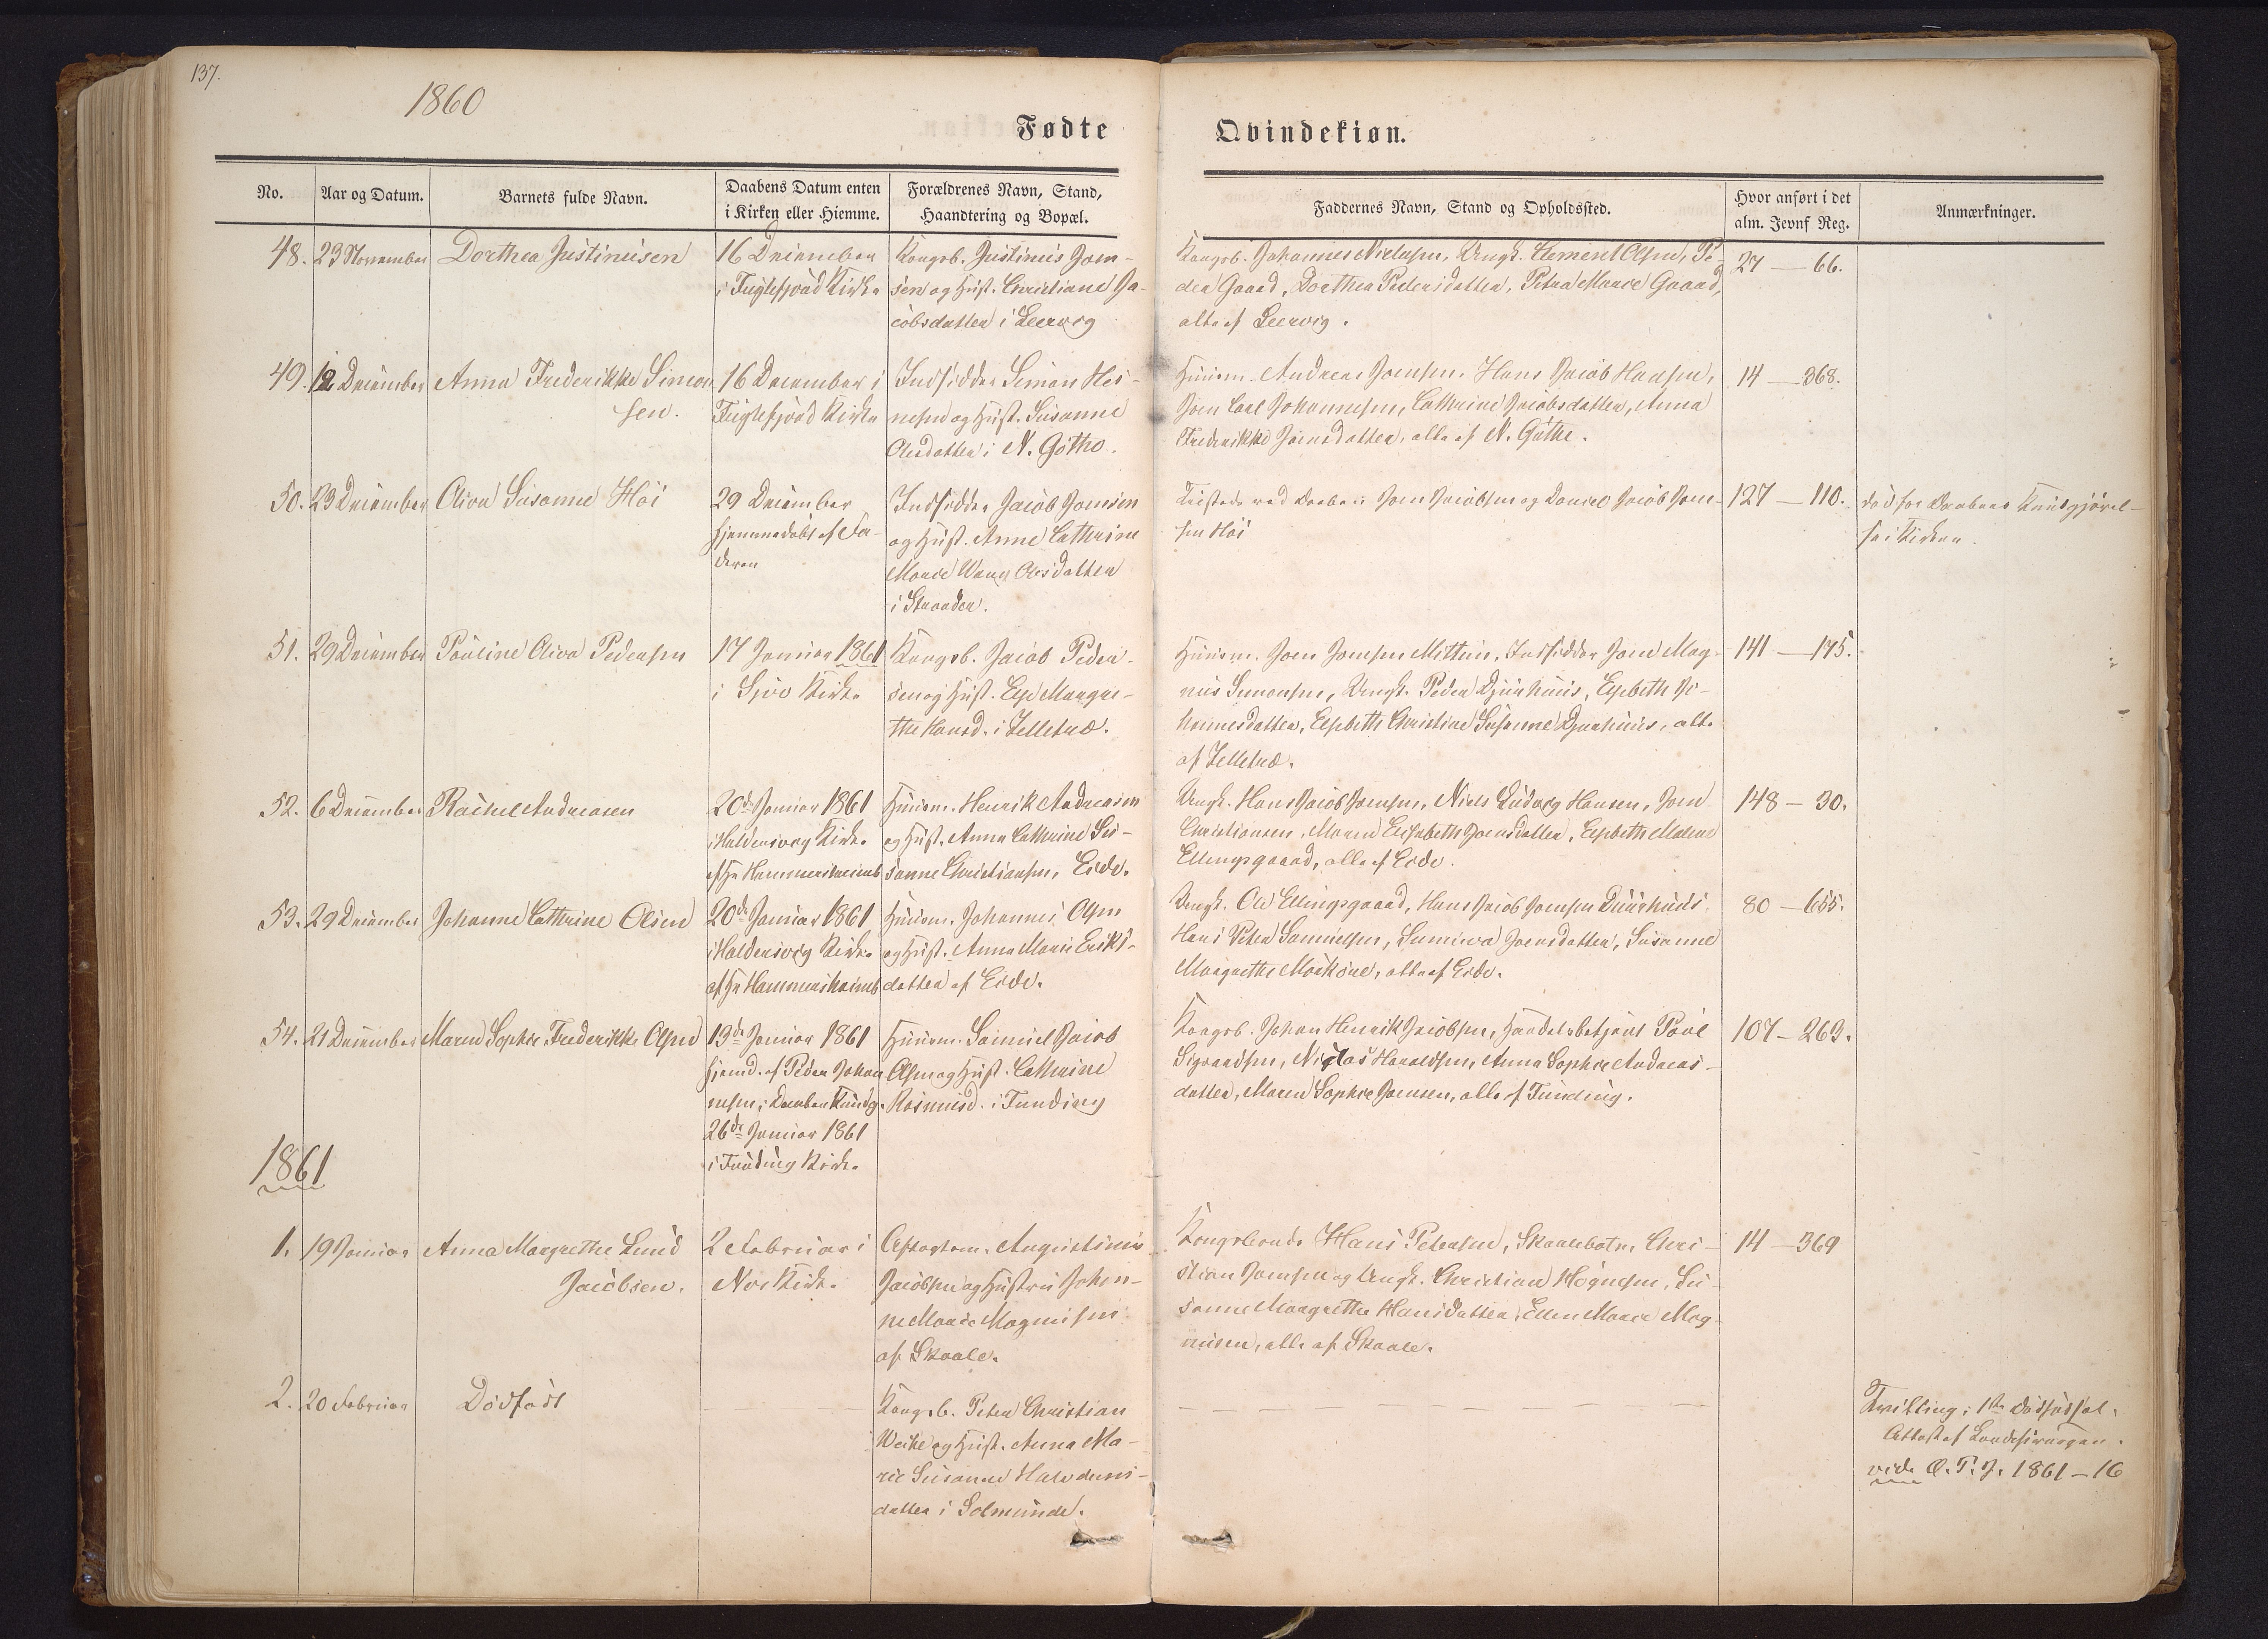 137.
1860
Fødte
Qvindekiøn.
No.
Aar og Datum.
Barnets fulde Navn.
Daabens Datum enten
i Kirken eller Hiemme.
Forældrenes Navn, Stand,
Haandtering og Bopæl.
Faddernes Navn, Stand og Opholdssted.
Hvor anført i det
alm. Jevnf Reg.
Anmærkninger.
48. 23 November
Dorthea Justinusen
16 December
i Fuglefjord Kirke
Kongsb. Justinus Joen-
sen og Hust. Christiane Ja-
cobsdatter i Leervig
Kongsb. Johannes Nielsen, Ungk. Clement Olsen, Pe-
der Gaard, Dorthea Pedersdatter, Petra Marie Gaard,
alle af Leervig.
27 — 66.
49. 12 December
Anna Frederikke Simon
sen.
16 December i
Fuglefjord Kirke
Indsidder Simon Hei-
nesen og Hust. Susanne
Olesdatter i N. Gøthe.
Huusm. Andreas Joensen, Hans Jacob Hansen,
Joen Carl Johannesen, Cathrine Jacobsdatter, Anna
Frederikke Joensdatter, alle af N. Gøthe.
14 — 368.
50. 23 December
Oliva Susanne Høi
29 December
hjemmedøbt af Fa-
deren
Indsidder Jacob Joensen
og Hust. Anne Cathrine
Marie Wang Olesdatter
i Strander.
Tilstede ved Daaben: Joen Jacobsen og Daniel Jacob Joen-
sen Høi
127 — 110.
død før Daabens Kundgjørel-
se i Kirken.
51. 29 December
Pouline Oliva Pedersen
17 Januar 1861
i Sjov Kirke
Kongsb. Jacob Peder-
sen og Hust. Else Margre-
the Hansd. i Selletræ.
Huusm. Joen Joensen Mittun, Indsidder Joen Mag-
nus Simonsen, Ungk. Peder Djurhuus, Elsebeth Jo-
hannesdatter, Elsebeth Christine Susanne Djurhuus, alle
af Selletræ.
141 — 175.
52. 6 December
Rachel Andreasen
20de Januar 1861
i Haldersvig Kirke
af Hr Hammershaimb
Huusm. Henrik Andreasen
og Hust. Anna Cathrine Su-
sanne Christiansen, Eide.
Ungk. Hans Jacob Joensen, Niels Ludvig Hansen, Joen
Christiansen, Maren Elisabeth Joensdatter, Elsebeth Malene
Ellingsgaard, alle af Eide.
148 — 30.
53. 29 December
Johanne Cathrine Olsen
20de Januar 1861
i Haldersvig Kirke
af Hr Hammershaimb
Huusm. Johannes Olsen
og Hust. Anna Marie Eriks-
datter af Eide.
Ungk. Ole Ellingsgaard, Hans Jacob Joensen Duurhuus
Hans Peter Samuelsen, Sunniva Joensdatter, Susanne
Margrethe Mørkøre, alle af Eide.
80 — 655.
54. 21 December
Maren Sophie Frederikke Olsen
13de Januar 1861
hjemd. af Peder Johan
nesen; Daaben Kundg.
26de Januar 1861
i Funding Kirke.
Huusm. Samuel Jacob
Olsen og Hust. Cathrine
Rasmusd. i Funding
Kongsb. Johan Henrik Jacobsen, Handelsbetjent Poul
Sigvardsen, Niclas Haraldsen, Anna Sophie Andreas-
datter, Maren Sophie Joensen, alle af Funding.
107 — 263.
1861
1. 19 Januar
Anna Margrethe Lund
Jacobsen.
2 Februar i
Næs Kirke.
Aftægtsm. Augustinus
Jacobsen og Hustru Johan-
ne Marie Magnusen
af Skaale.
Kongsbonde Hans Petersen, Skaalebotn, Chri-
stian Joensen og Ungk. Christian Høgnesen, Su-
sanne Margrethe Hansdatter, Ellen Marie Mag-
nusen, alle af Skaale.
14 — 369
2. 20 Februar
Dødfødt
Kongsb. Peter Christian
Weihe og Hust. Anna Ma-
rie Susanne Halvdans-
datter i Solmunde.
Tvilling; 1ste Dødfødsel.
Attest af Landchirurgen.
vide O.T.J. 1861 — 16